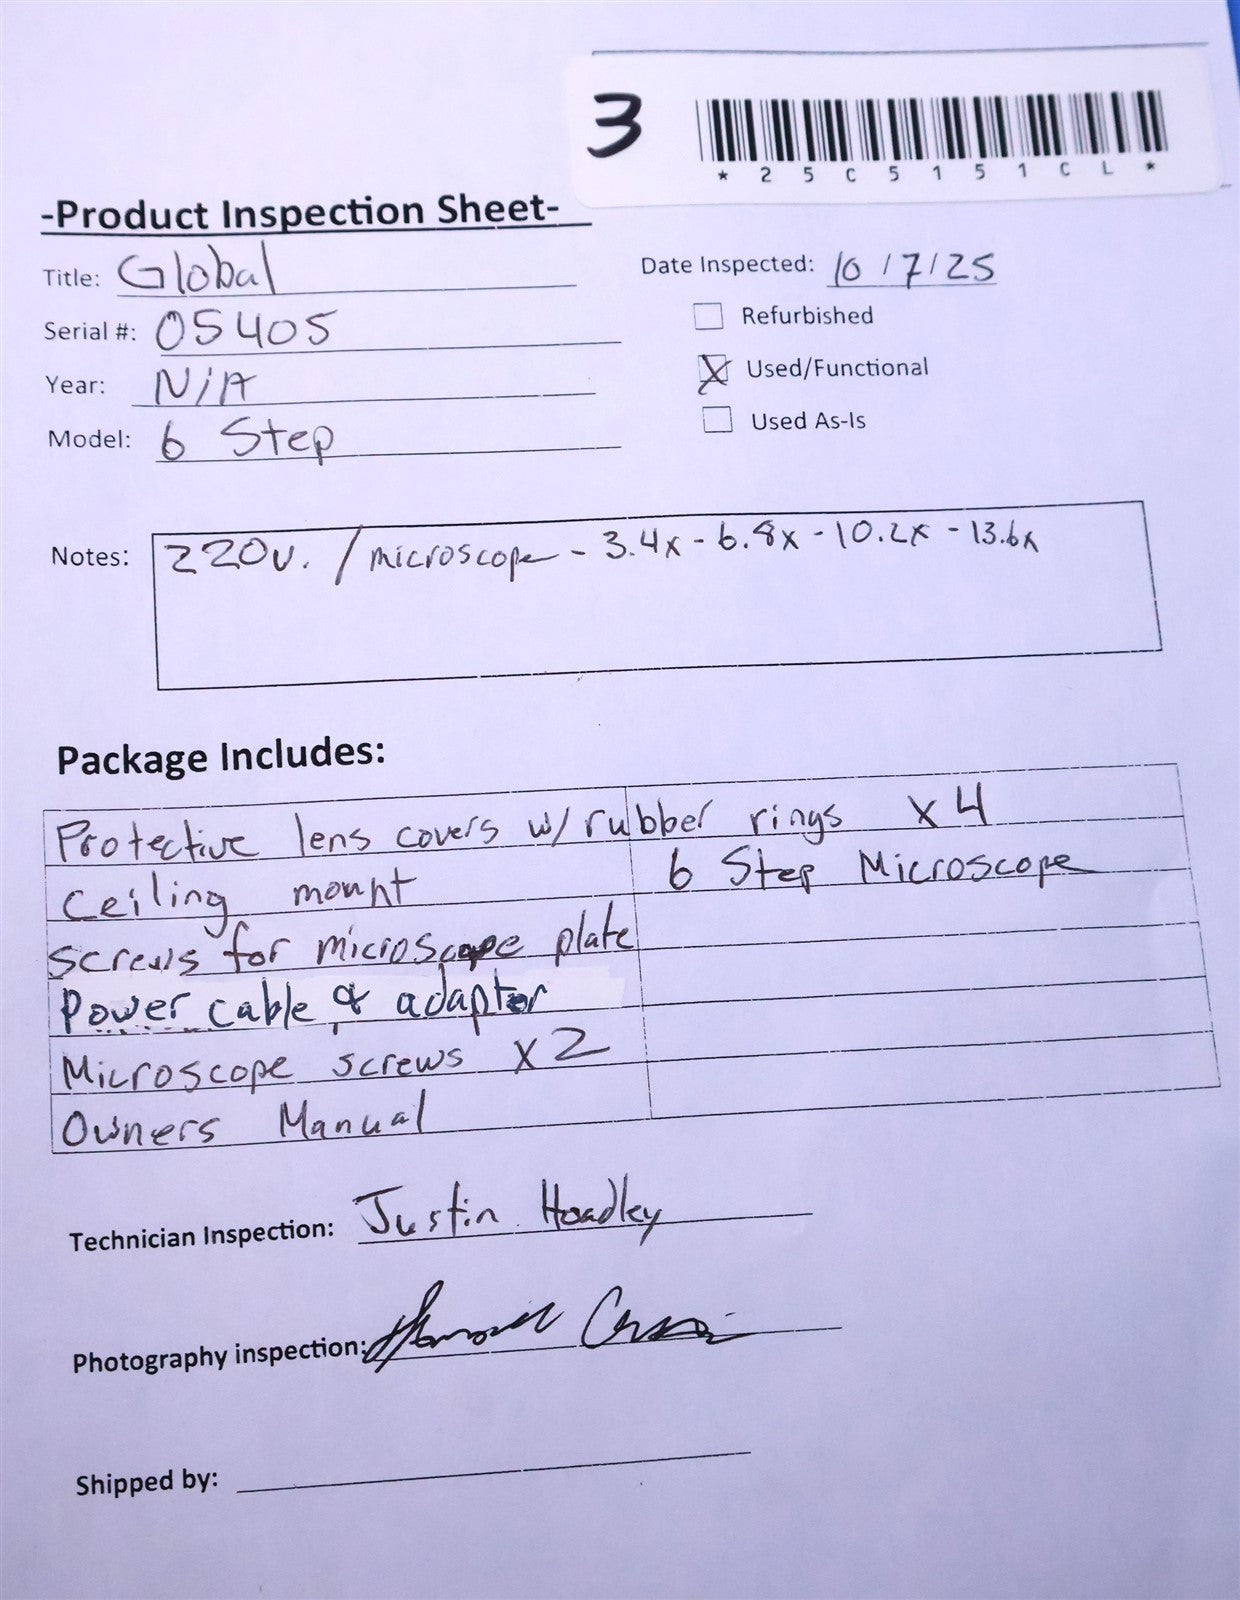 3
*25C5151CL*
-Product Inspection Sheet-
Title: Global
Date Inspected: 10/7/25
Serial #: 05405
Refurbished
Year: N/A
X Used/Functional
Model: 6 Step
Used As-Is
Notes: 220v. / microscope - 3.4x - 6.8x - 10.2x - 13.6x
Package Includes:
Protective lens covers w/ rubber rings x4
Ceiling mount
6 Step Microscope
Screws for microscope plate
Power cable & adapter
Microscope screws x2
Owners Manual
Technician Inspection: Justin Hoadley
Photography inspection:
Shipped by: